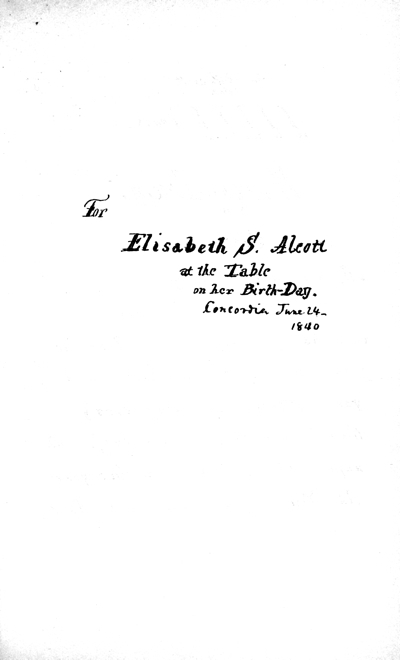 For
Elisabeth S. Alcott
at the Table
on her Birth-Day.
Concordia June 24-
1840